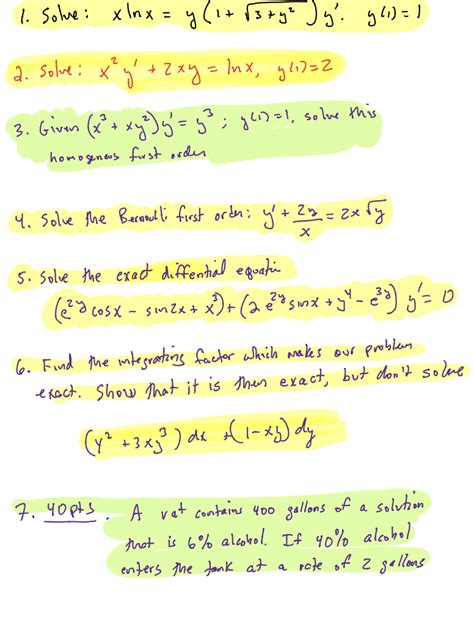 1. Solve: x ln x = y (1 + √3+y²) y'. y(1) = 1
2. Solve: x² y' + 2xy = ln x, y(1) = 2
3. Given (x³ + xy²) y' = y³ ; y(1) = 1, solve this
homogeneous first order
4. Solve the Bernoulli first order: y' + 2y/x = 2x √y
5. Solve the exact differential equatin
(e^2y cos x - sin 2x + x³) + (2 e^2y sin x + y⁴ - e^3y) y' = 0
6. Find the integrating factor which makes our problem
exact. Show that it is then exact, but don't solve
(y² + 3xy³) dx + (1-xy) dy
7. 40 pts. A vat contains 400 gallons of a solution
that is 6% alcohol. If 40% alcohol
enters the tank at a rate of 2 gallons